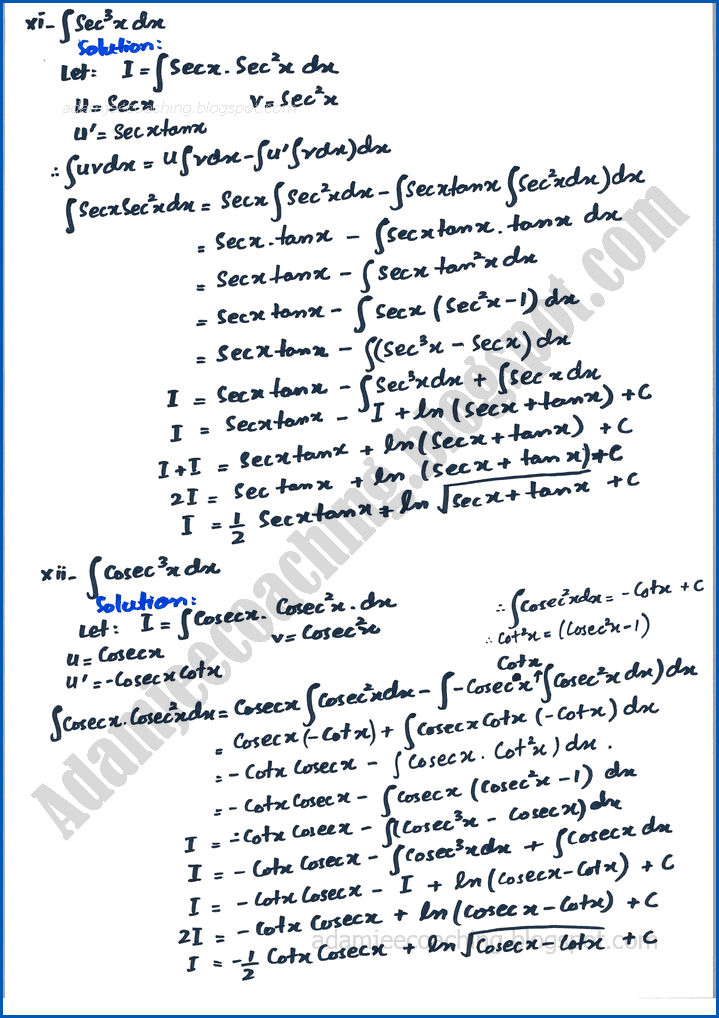 xi- ∫Sec³x dx
Solution:
Let: I = ∫Secx. Sec²x dx
u = Secx v = Sec²x
adamjeecoaching.blogspot.com
u' = Secxtanx
∴ ∫uvdx = u∫vdx - ∫u'∫vdx)dx
∫SecxSec²xdx = Secx ∫Sec²xdx - ∫Secxtanx ∫Sec²xdx)dx
= Secx.tanx - ∫Secxtanx.tanx dx
= Secxtanx - ∫Secx tan²x dx
= Secxtanx - ∫Secx (Sec²x-1) dx
= Secxtanx - ∫(Sec³x - Secx) dx
I = Secxtanx - ∫Sec³xdx + ∫Secx dx
I = Secxtanx - I + ln (Secx+tanx) + C
I+I = Secxtanx + ln(Secx+tanx) + C
2I = Sec tanx + ln (Secx+tanx)+C
I = 1/2 Secxtanx + ln √Secx+tanx + C
xii- ∫Cosec³x dx
Solution:
Let: I = ∫Cosecx. Cosec²x. dx ∴ ∫Cosec²xdx = -Cotx + C
u = Cosecx v = Cosec²x ∴ Cot²x = (Cosec²x-1)
u' = -Cosecx Cotx Cotx
∫Cosecx.Cosec²xdx = Cosecx ∫Cosec²xdx - ∫-Cosecx↑∫Cosec²xdx)dx
= Cosecx(-Cotx) + ∫Cosecx Cotx (-Cotx) dx
= -Cotx Cosecx - ∫Cosecx. Cot²x) dx.
= -Cotx Cosecx - ∫Cosecx (Cosec²x-1) dx
I = -Cotx Cosecx - ∫(Cosec³x - Cosecx) dx
I = -Cotx Cosecx - ∫Cosec³xdx + ∫Cosecx dx
I = -Cotx Cosecx - I + ln(Cosecx-Cotx) + C
2I = -Cotx Cosecx + ln(Cosecx-Cotx) + C
adamjeecoaching.blogspot.com
I = -1/2 Cotx Cosecx + ln √Cosecx-Cotx + C
Adamjeecoaching.blogspot.com